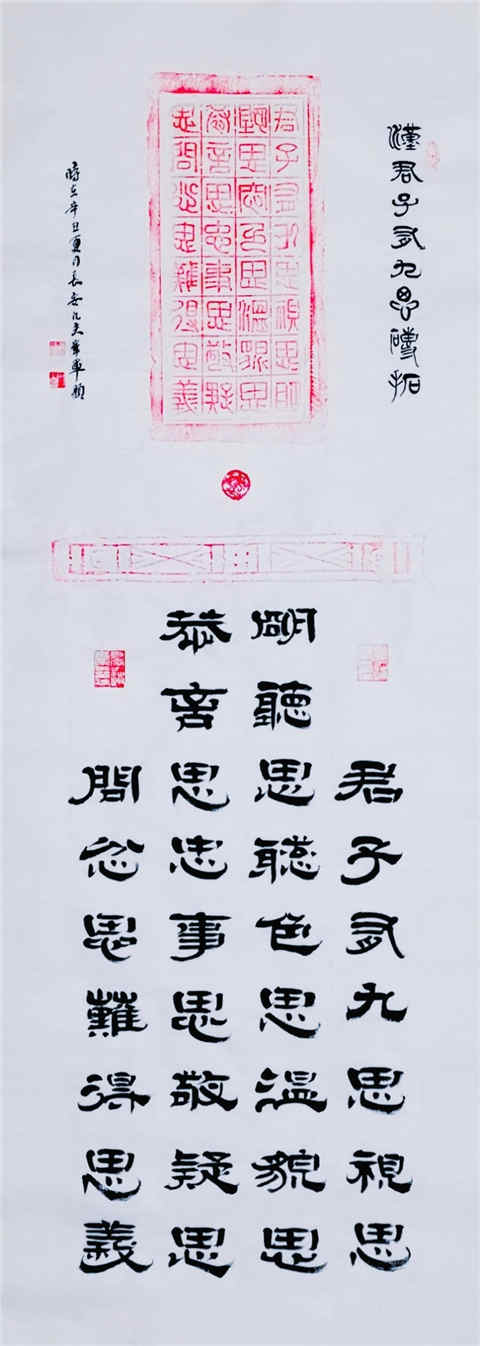 漢君子有九思磚拓
君子有九思視思明
聽思聰色思溫貌思
恭言思忠事思敬疑
思問忿思難得思義
時在辛丑夏月長安題
君子有九思視思
明聽思聰色思溫貌思
恭言思忠事思敬疑思
問忿思難得思義